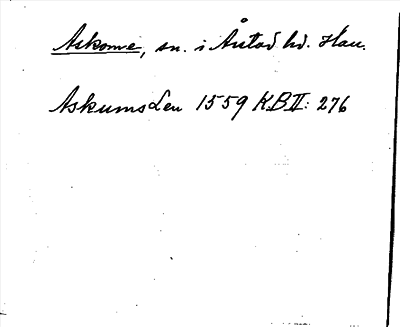 Askome, sn. i Årstad hd. Hall.
Askums Len 1559 K.B.II: 276